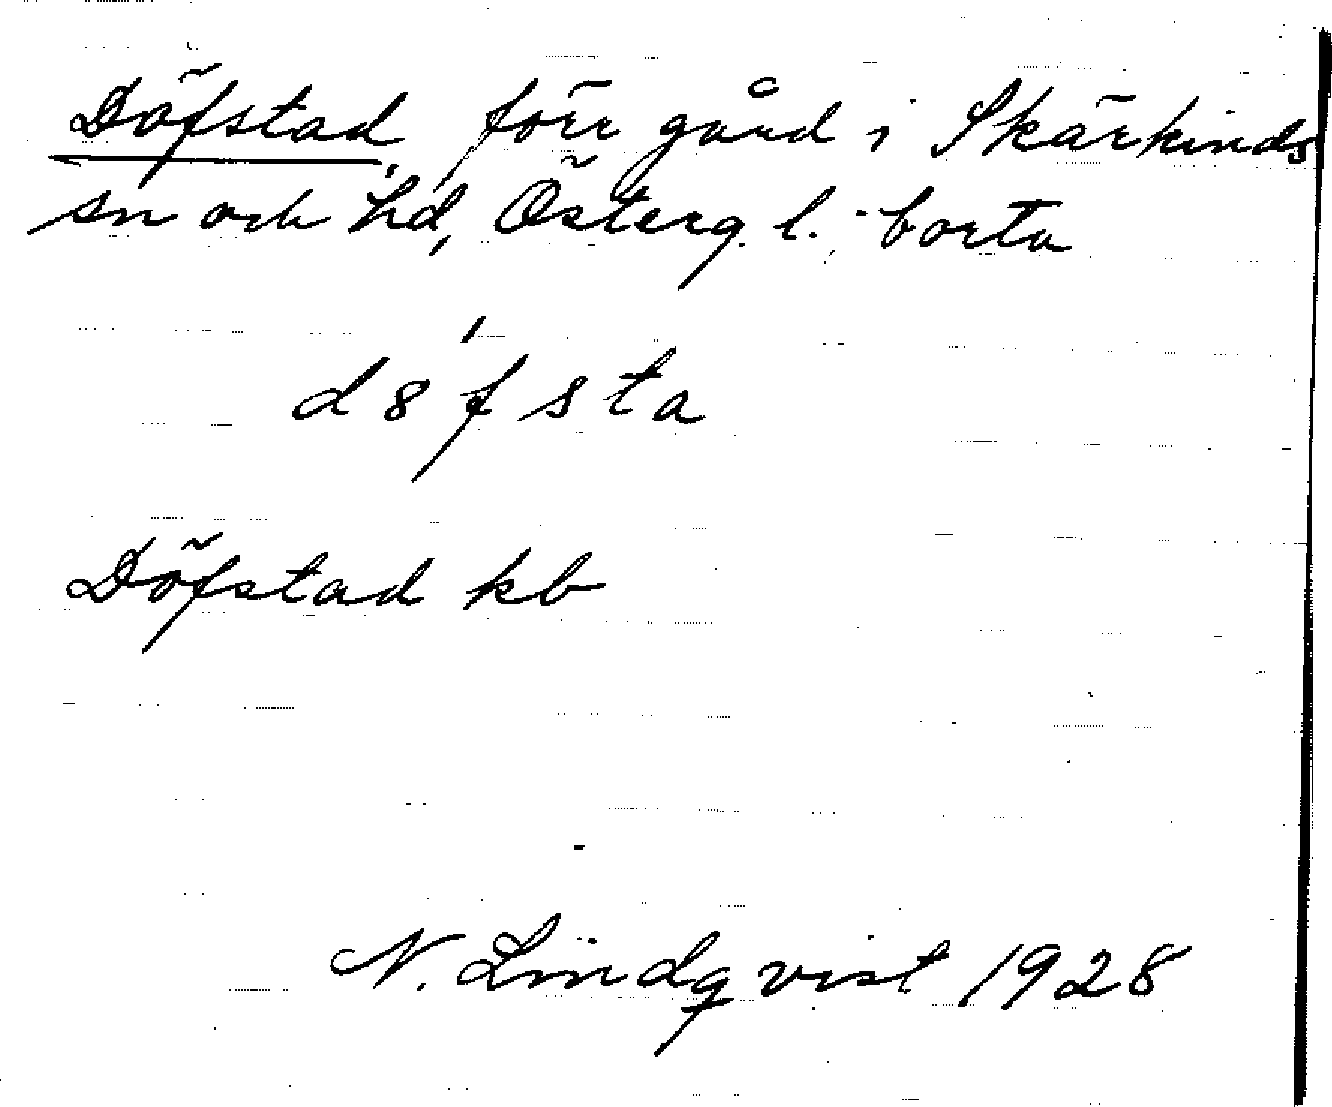 Döfstad, förr gård i Skärkinds
sn och hd, Österg. l.; borta
d8'fsta
Döfstad kb
N. Lindqvist 1928